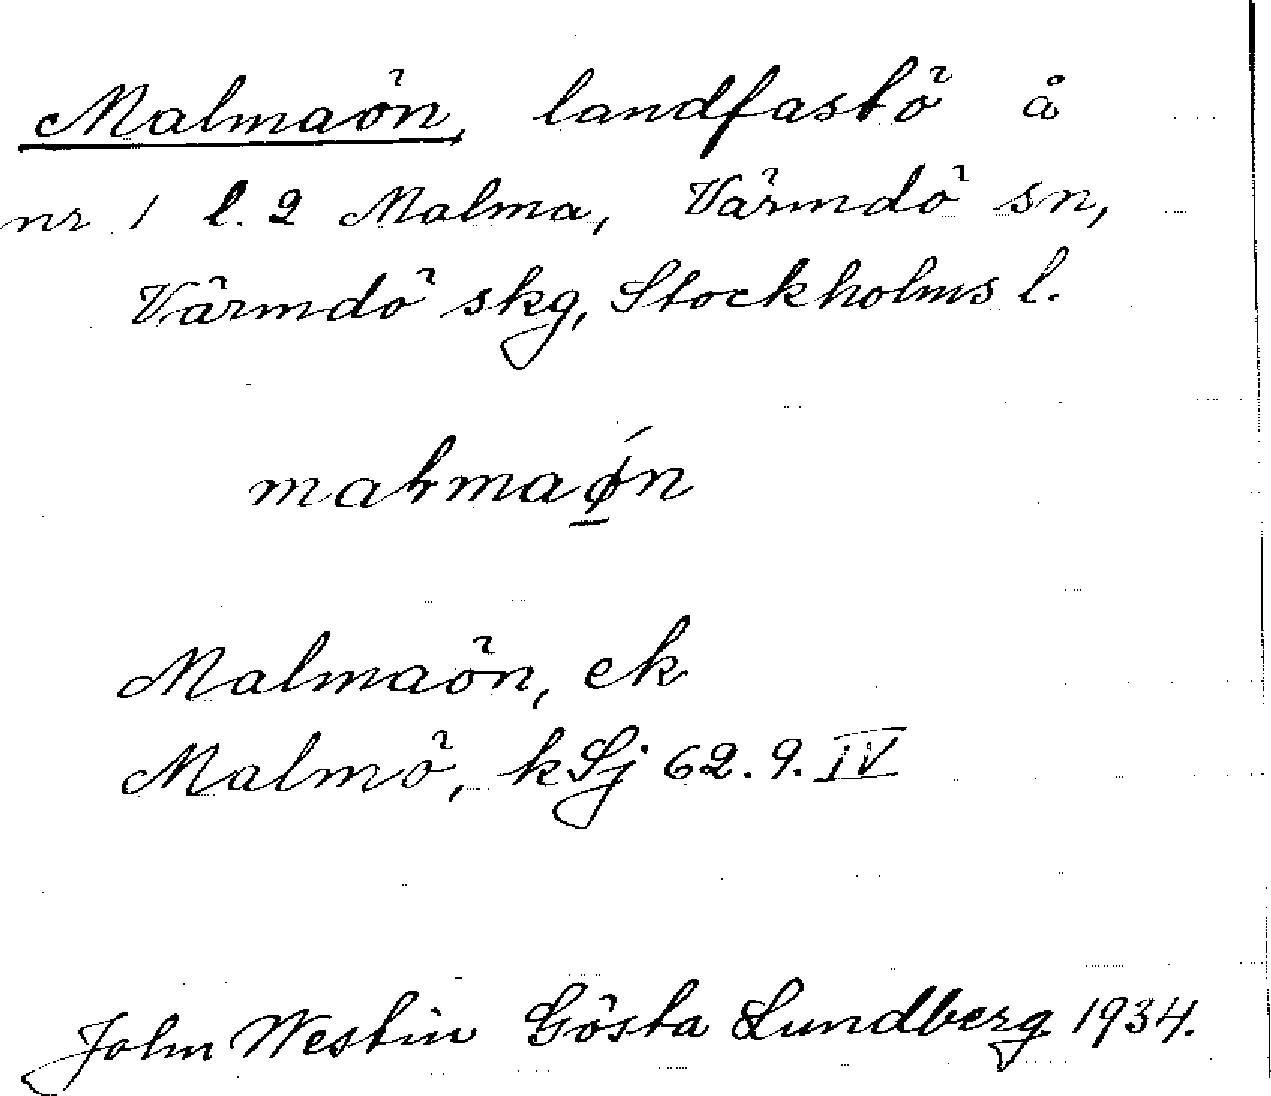 Malmaön, landfastö å
nr 1 l. 2 Malma, Värmdö sn,
Värmdö skg, Stockholms l.
malmaǿn
Malmaön, ek
Malmö, kSj 62.9.IV
John Westin Gösta Lundberg 1934.